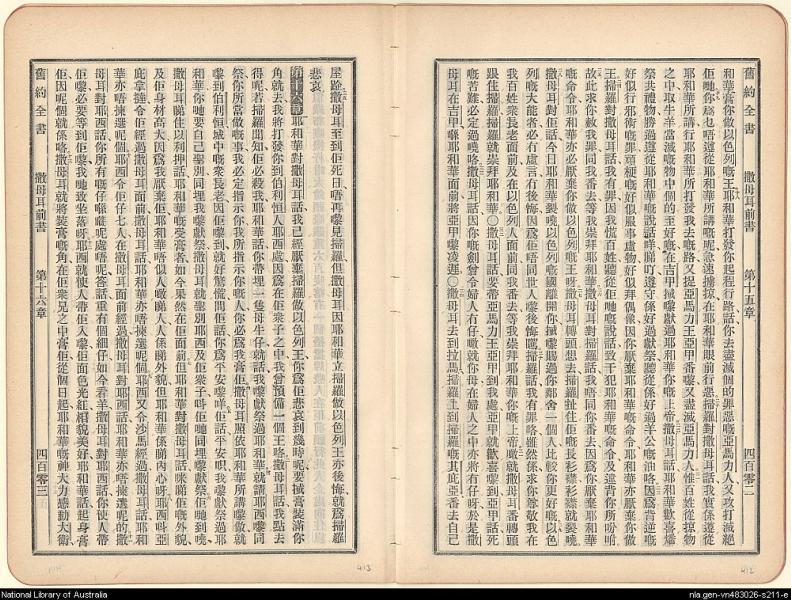 舊約全書　撒母耳前書　第十五章　四百零二
和華膏你做以色列嘅王耶和華打發你起程行路話你去盡滅個的罪惡嘅亞馬力人又攻打滅絕
佢哋你爲乜唔遵從耶和華所講嘅呢急速擄掠在耶和華眼前行惡掃羅對撒母耳話我實係遵從
耶和華所講嘅行耶和華所打發我去嘅路又捉亞馬力王亞甲番嚟又盡滅亞馬力人惟百姓從掠物
之中取牛羊當滅嘅物中個的至好嘅在吉甲揻嚟獻過耶和華你嘅上帝撒母耳話耶和華歡喜燔
祭共禮物勝過遵從耶和華嘅說話咩睇吓遵守係好過獻祭聽從係好過羊公嘅油咯因爲背逆嘅
好似行邪術嘅罪頑梗嘅好似服事虛物好似拜偶像因你厭棄耶和華嘅命令耶和華亦厭棄你做
王掃羅對撒母耳話我有罪因我慌百姓聽從佢哋嘅說話致干犯耶和華嘅命令及違背你所吩咐
故此求你赦我罪同我番去等我崇拜耶和華撒母耳對掃羅話我唔同你番去因爲你厭棄耶和華
嘅命令耶和華亦必厭棄你做以色列嘅王呀撒母耳轉頭想去掃羅扯住佢嘅長衫襟衫襟就裂嘵
撒母耳對佢話今日耶和華裂嘵以色列嘅國離開你揻嚟賜過你鄰舍一個人比較你更好嘅以色
列嘅大能者必冇虛言冇後悔因爲佢唔同世人嚟後悔掃羅話我有罪咯雖然係求你尊敬我在
我百姓衆長老面前及在以色列人面前同我番去等我崇拜耶和華你嘅上帝噉就撒母耳番轉頭
跟住掃羅掃羅就崇拜耶和華〇撒母耳話要帶亞馬力王亞甲到我處亞甲就歡喜嚟到亞甲話死
嘅苦難必定經過嘵咯撒母耳話因你嘅劍曾令婦人冇仔噉就你母在婦人之中亦將冇仔呀於是撒
母耳在吉甲喺耶和華面前將亞甲嚟凌遲〇撒母耳去到拉馬掃羅上到掃羅嘅其庇亞番去自己
412
屋企撒母耳至到佢死日唔再嚟見掃羅但撒母耳因耶和華立掃羅做以色列王亦後悔就爲掃羅
悲哀
第十六章耶和華對撒母耳話我已經厭棄掃羅做以色列王你爲佢悲哀到幾時呢要揻膏裝滿你
角就去我將打發你到伯利恒人耶西處因爲在佢衆子之中我曾預備一個王咯撒母耳話我點去
得呢若掃羅聞知佢必殺我耶和華話你帶埋一隻母牛仔就話我嚟獻祭過耶和華就請耶西嚟同
祭你所當做嘅事我必定指示你我所指示你嘅人你必爲我膏佢撒母耳照依耶和華所講嚟做就
嚟到伯利恒城中嘅衆長老因佢嚟到就好驚慌問佢話你爲平安嚟咩佢話平安呮我嚟獻祭過耶
和華你哋要自己聖別同埋我嚟獻祭撒母耳就聖別耶西及佢衆子呌佢哋同埋嚟獻祭佢哋到嘵
撒母耳睇住以利押話耶和華嘅受膏者如今果然在佢面前但耶和華對撒母耳話咪睇佢嘅外貌
及佢身材高大因爲我厭棄佢耶和華唔似人噉睇人人係睇外貌但耶和華係睇內心呀耶西呌亞
庇拿撻令佢經過撒母耳面前撒母耳話耶和華亦唔揀選呢個耶西又令沙馬經過撒母耳話耶和
華亦唔揀選呢個耶西令佢仔七人在撒母耳面前經過撒母耳對耶西話耶和華亦唔揀選呢的撒
母耳對耶西話你所有嘅仔喺呢處唔呢答話重有個細仔如今看羊撒母耳對耶西話你使人帶
佢嚟必要等到佢嚟我哋致坐落呀耶西就使人帶佢入嚟佢面色光紅相貌美好耶和華話起身膏
佢因呢個就係咯撒母耳就將裝膏嘅角在佢衆兄之中膏佢從個日起耶和華嘅神大力感動大衛
舊約全書　撒母耳前書　第十六章　四百零三
413
National Library of Australia
nla.gen-vn483026-s211-e